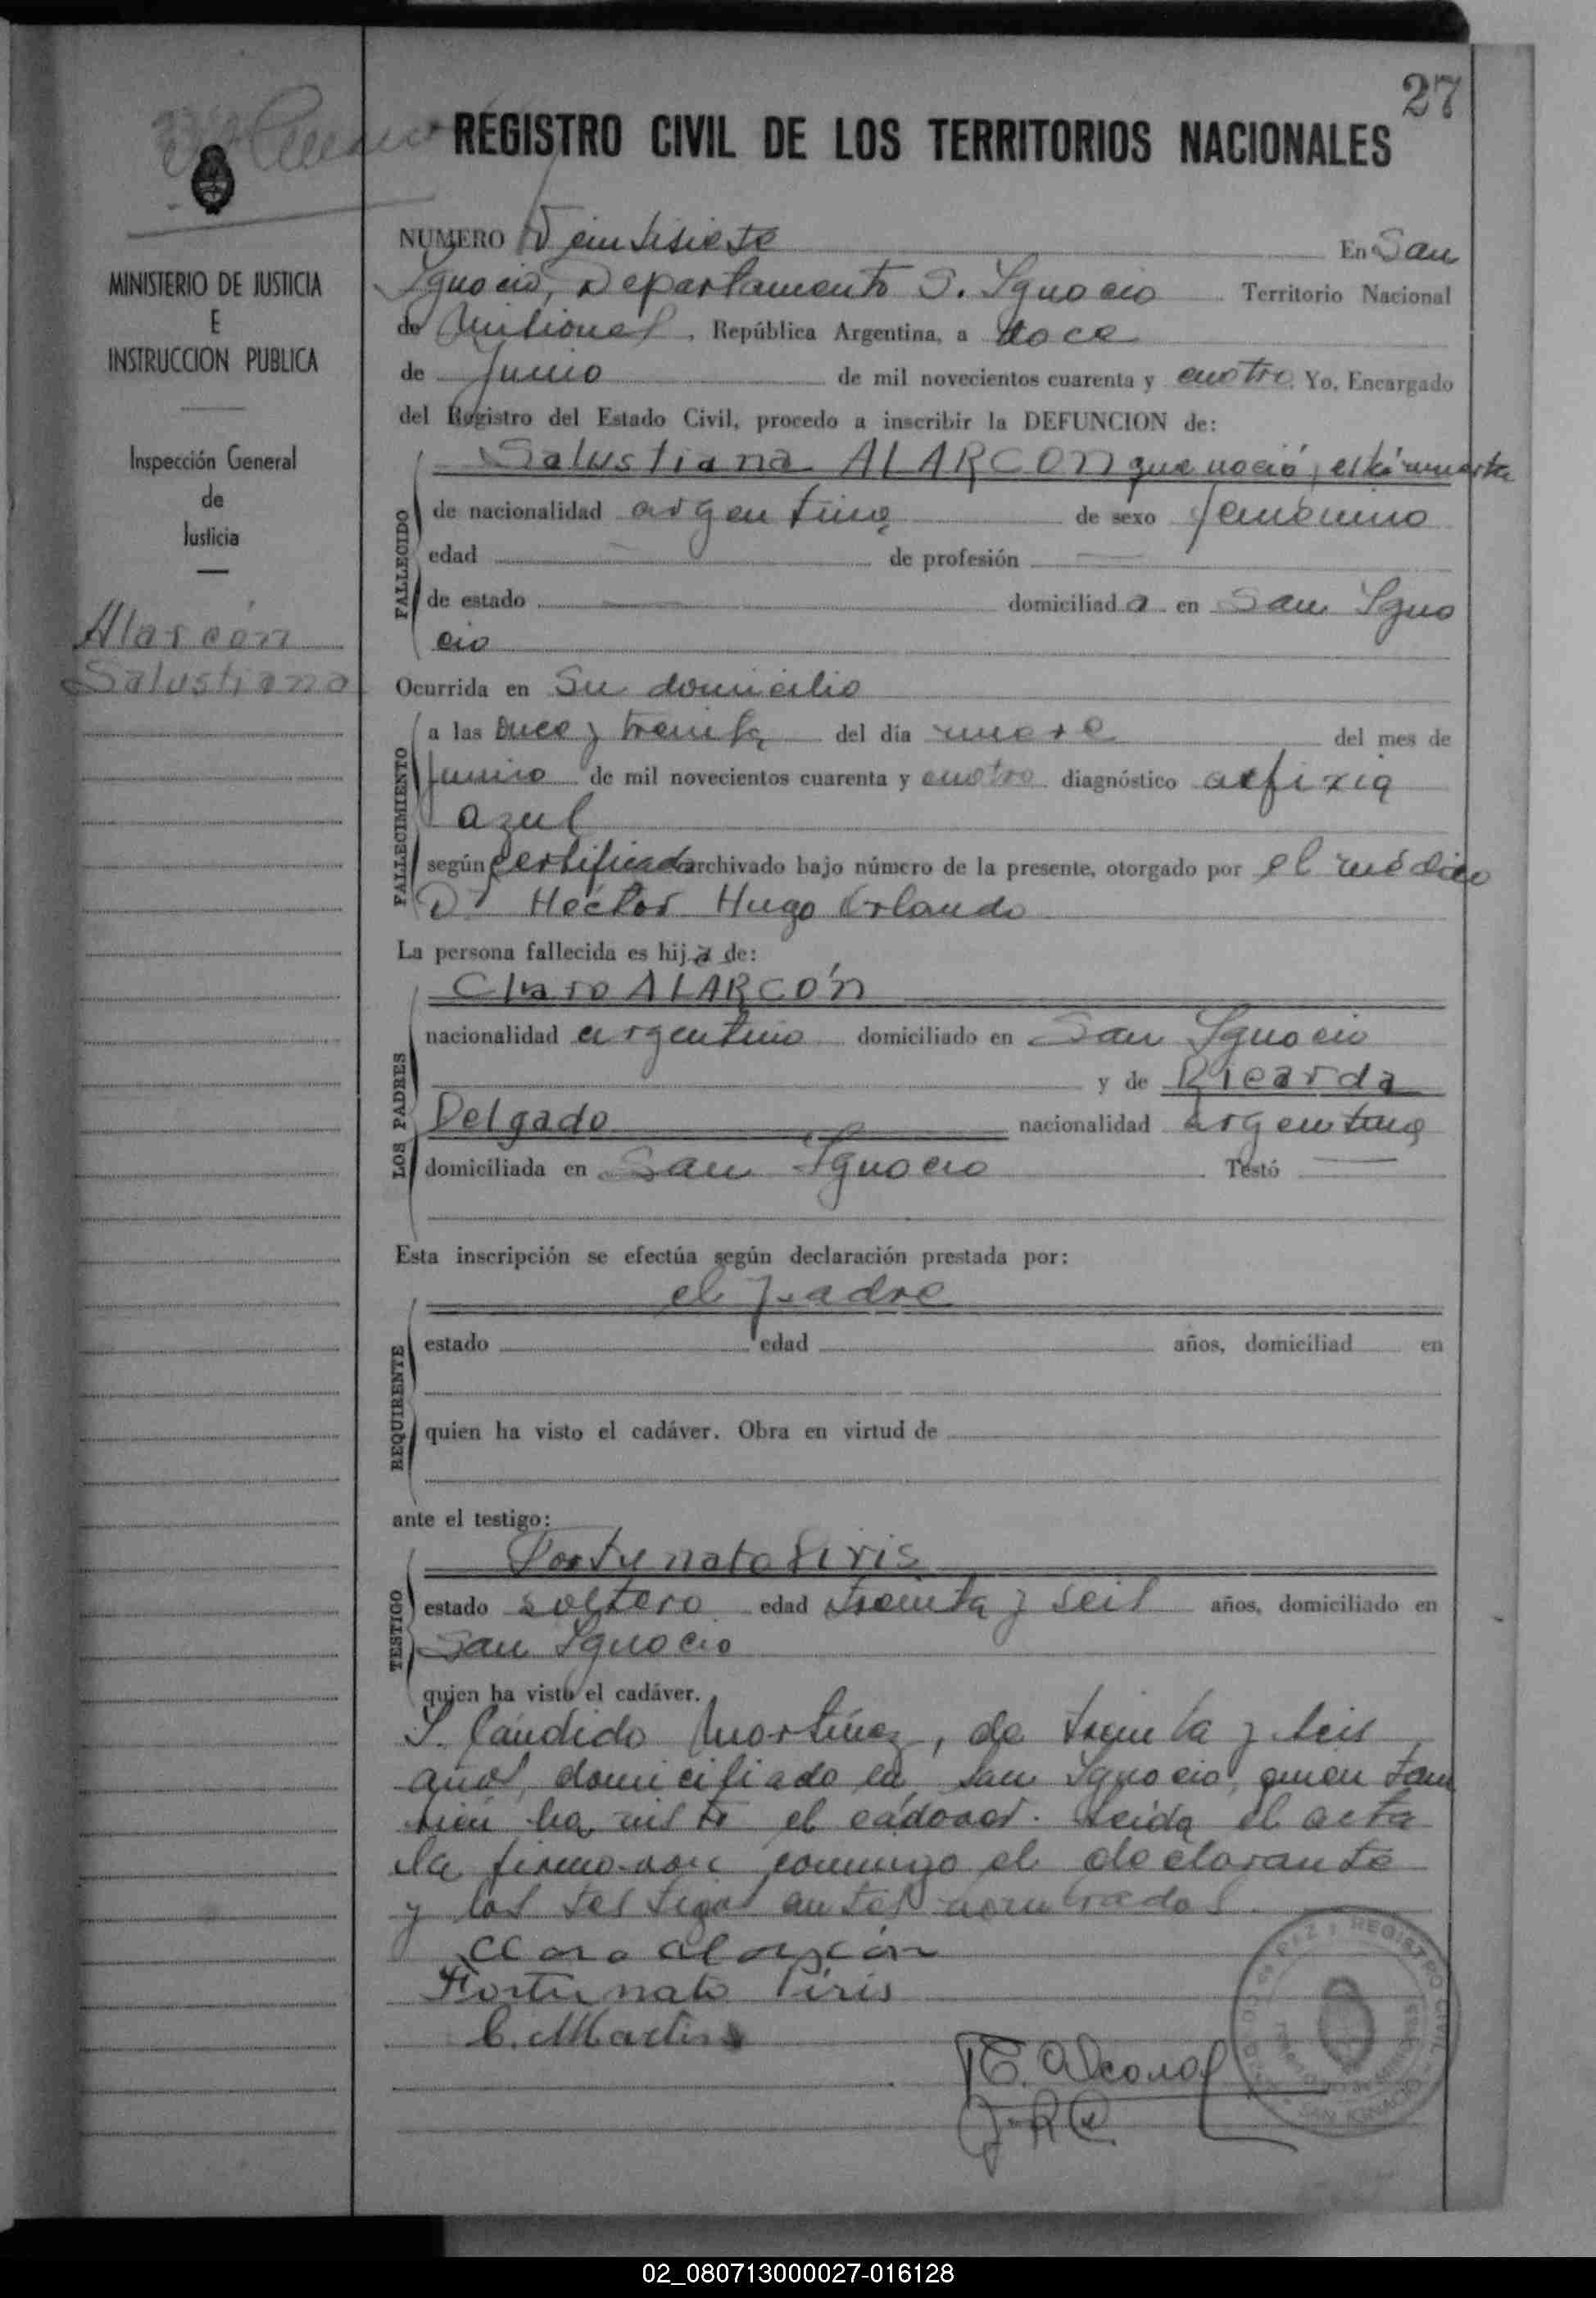 27
REGISTRO CIVIL DE LOS TERRITORIOS NACIONALES
MINISTERIO DE JUSTICIA
E
INSTRUCCION PUBLICA
Inspección General
de
Justicia
Alarcón
Salustiana
NUMERO Veintisiete En San
Ignacio, Departamento S. Ignacio Territorio Nacional
de Misiones, República Argentina, a doce
de Junio de mil novecientos cuarenta y cuatro. Yo, Encargado
del Registro del Estado Civil, procedo a inscribir la DEFUNCION de:
Salustiana ALARCON que nació, está muerta
FALLECIDO
de nacionalidad argentina de sexo femenino
edad — de profesión —
de estado — domiciliada en San Igna
cio
Ocurrida en Su domicilio
FALLECIMIENTO
a las once y treinta del día nueve del mes de
Junio de mil novecientos cuarenta y cuatro diagnóstico asfixia
azul
según certificado archivado bajo número de la presente, otorgado por el médico
Dr Héctor Hugo Orlando
La persona fallecida es hija de:
LOS PADRES
Claro ALARCÓN
nacionalidad argentino domiciliado en San Ignacio
y de Ricarda
Delgado nacionalidad argentina
domiciliada en San Ignacio Testó —
Esta inscripción se efectúa según declaración prestada por:
REQUIRENTE
el padre
estado edad años, domiciliad en
quien ha visto el cadáver. Obra en virtud de
ante el testigo:
TESTIGO
Fortunato Piris
estado soltero edad treinta y seis años, domiciliado en
San Ignacio
quien ha visto el cadáver.
Cándido Martínez, de treinta y seis
años, domiciliado en San Ignacio, quien tam
bien ha visto el cadaver. Leida el acta
la firmaron conmigo el declarante
y los testigos antes nombrados.
Claro alarcón
Fortunato Piris
C. Martin
REGISTRO CIVIL
SAN IGNACIO
02_080713000027-016128